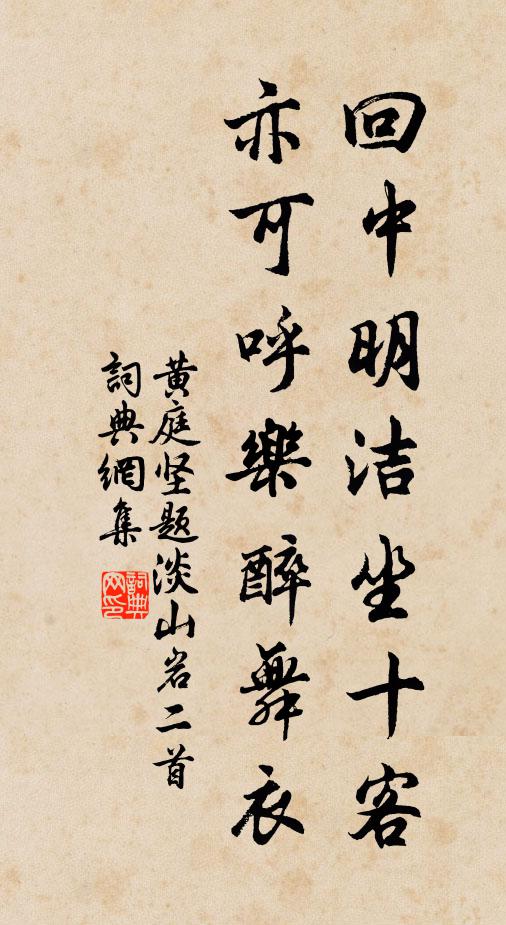 回中明洁坐十客
亦可呼樂醉舞衣
黄庭坚题淡山岩二首
詞典網集
詞典网印